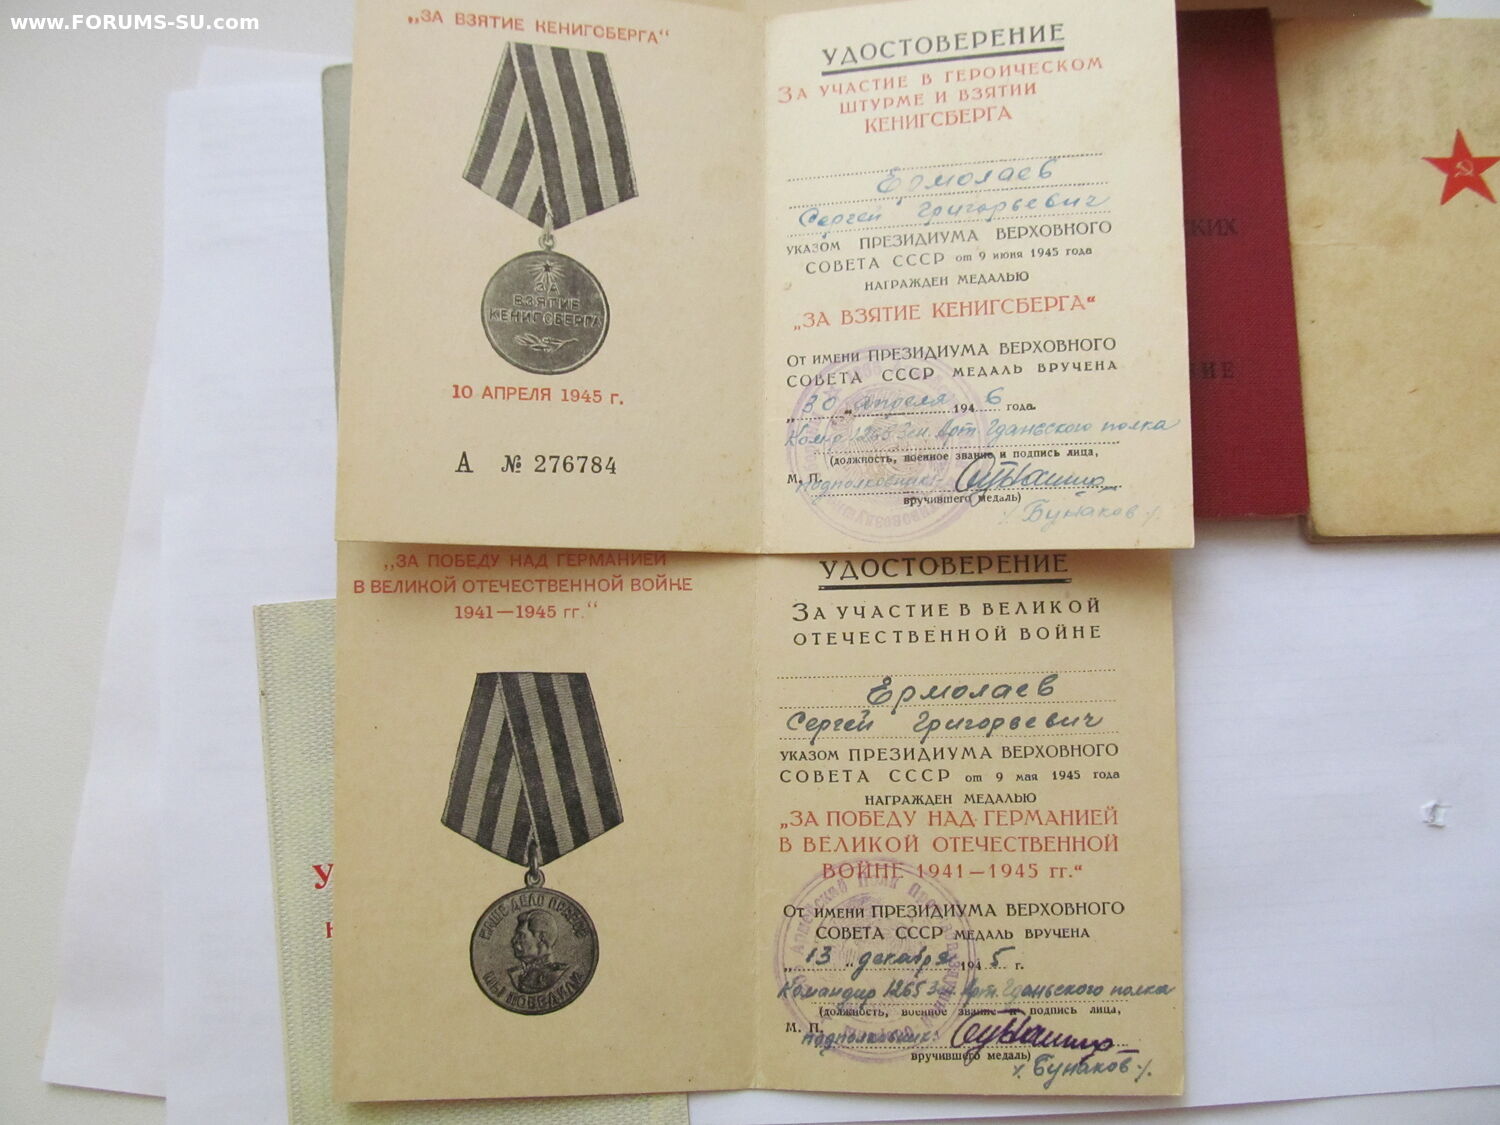 www.FORUMS-SU.com
„ЗА ВЗЯТИЕ КЕНИГСБЕРГА“
ЗА
ВЗЯТИЕ
КЕНИГСБЕРГА
10 АПРЕЛЯ 1945 г.
А № 276784
УДОСТОВЕРЕНИЕ
ЗА УЧАСТИЕ В ГЕРОИЧЕСКОМ
ШТУРМЕ И ВЗЯТИИ
КЕНИГСБЕРГА
Ермолаев
Сергей Григорьевич
УКАЗОМ ПРЕЗИДИУМА ВЕРХОВНОГО
СОВЕТА СССР от 9 июня 1945 года
НАГРАЖДЕН МЕДАЛЬЮ
„ЗА ВЗЯТИЕ КЕНИГСБЕРГА“
ОТ ИМЕНИ ПРЕЗИДИУМА ВЕРХОВНОГО
СОВЕТА СССР МЕДАЛЬ ВРУЧЕНА
„30„ апреля 1946 года.
Ком-р 1265 Зен. Арт. Гданьского полка
(должность, военное звание и подпись лица,
М. П. Подполковник:
вручившего медаль)
/Бунаков/.
КИХ
НИЕ
„ЗА ПОБЕДУ НАД ГЕРМАНИЕЙ
В ВЕЛИКОЙ ОТЕЧЕСТВЕННОЙ ВОЙНЕ
1941—1945 гг.“
НАШЕ ДЕЛО ПРАВОЕ
МЫ ПОБЕДИЛИ
УДОСТОВЕРЕНИЕ
ЗА УЧАСТИЕ В ВЕЛИКОЙ
ОТЕЧЕСТВЕННОЙ ВОЙНЕ
Ермолаев
Сергей Григорьевич
УКАЗОМ ПРЕЗИДИУМА ВЕРХОВНОГО
СОВЕТА СССР от 9 мая 1945 года
НАГРАЖДЕН МЕДАЛЬЮ
„ЗА ПОБЕДУ НАД ГЕРМАНИЕЙ
В ВЕЛИКОЙ ОТЕЧЕСТВЕННОЙ
ВОЙНЕ 1941—1945 гг.“
ОТ ИМЕНИ ПРЕЗИДИУМА ВЕРХОВНОГО
СОВЕТА СССР МЕДАЛЬ ВРУЧЕНА
„13„ декабря 1945 г.
Командир 1265 Зен. Арт. Гданьского полка
(должность, военное звание и подпись лица,
М. П. подполковник:
вручившего медаль)
/Бунаков/.
У